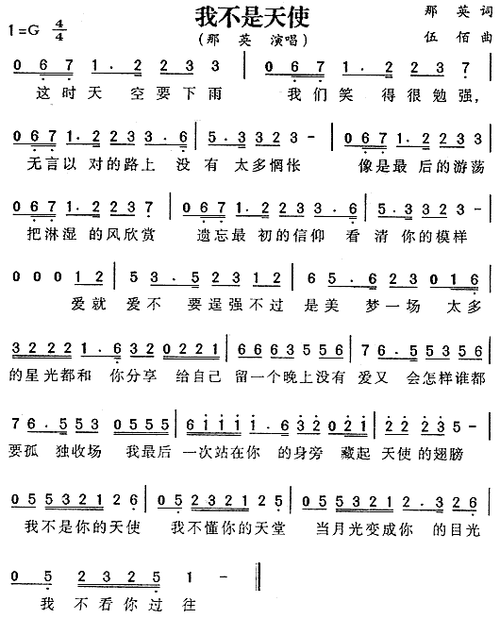 我不是天使
1=G 4/4
(那 英 演唱)
那 英 词
伍 佰 曲
0 6 7 1. 2 2 3 3 | 0 6 7 1. 2 2 3 7 |
这时天 空要下雨 我们笑 得很勉强,
0 6 7 1. 2 2 3 3. 6 | 5. 3 3 2 3 – | 0 6 7 1. 2 2 3 3 |
无言以 对的路上 没有 太多惆怅 像是最 后的游荡
0 6 7 1. 2 2 3 7 | 0 6 7 1. 2 2 3 3. 6 | 5. 3 3 2 3 – |
把淋湿 的风欣赏 遗忘最 初的信仰 看 清 你的模样
0 0 0 1 2 | 5 3. 5 2 3 1 2 | 6 5. 6 2 3 0 1 6 |
爱就 爱不 要逞强不过 是美 梦一场 太多
3 2 2 2 1. 6 3 2 0 2 2 1 | 6 6 6 3 5 5 5 6 7 6. 5 5 3 5 6
的星光都和 你分享 给自己 留一个晚上没有 爱又 会怎样谁都
7 6. 5 5 3 0 5 5 5 | 6 1 1 1 1. 6 3 2 0 2 1 | 2 2. 2 3 5 – |
要孤 独收场 我最后 一次站在你 的身旁 藏起 天使的翅膀
0 5 5 3 2 1 2 6 | 0 5 2 3 2 1 2 5 | 0 5 5 3 2 1 2. 3 2 6 |
我不是你的天使 我不懂你的天堂 当月光变成你 的目光
0 5 2 3 2 5 1 – ‖
我 不看你过往